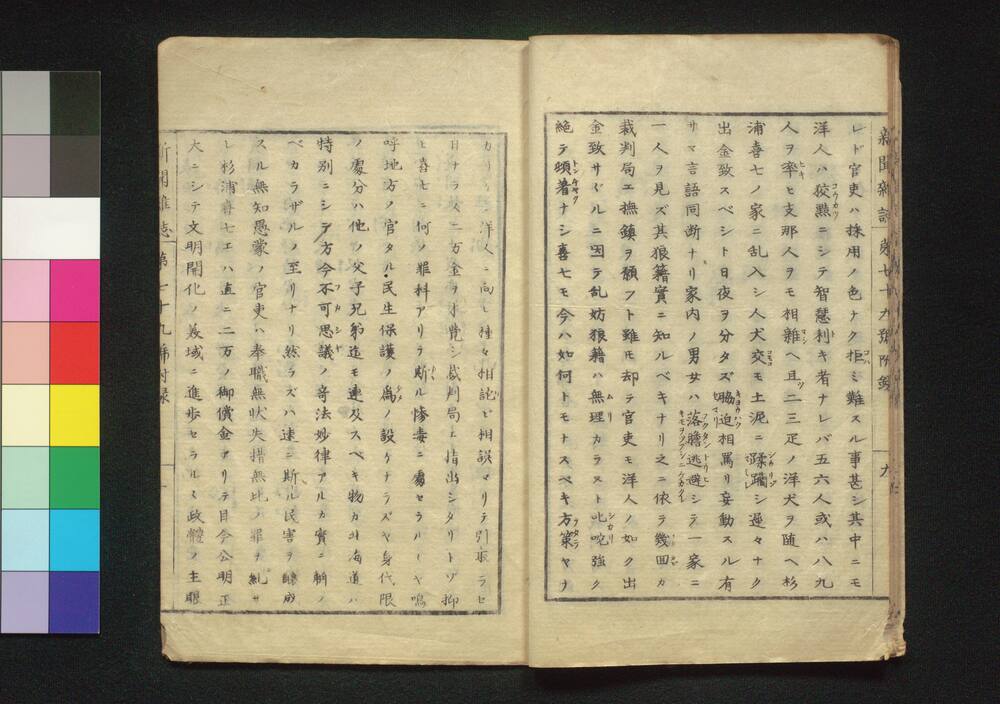 新聞雑誌 第七十九號附録 九
レド官吏ハ採用ノ色ナク拒ミ難スル事甚シ其中ニモ
洋人ハ狡黠ニシテ智慧利キ者ナレバ五六人或ハ八九
人ヲ率ヒ支那人ヲモ相雜ヘ且二三疋ノ洋犬ヲ随ヘ杉
浦喜七ノ家ニ乱入シ人犬交モ土泥ニ蹂躙シ遲々ナク
出金致スベシト日夜ヲ分タズ脇迫相罵リ妄動スル有
サマ言語同断ナリ家内ノ男女ハ落膽逃避シテ一家ニ
一人ヲ見ズ其狼籍實ニ知ルベキナリ之ニ依テ幾回カ
裁判局エ撫鎮ヲ願フト雖モ却テ官吏モ洋人ノ如ク出
金致サヾルニ因テ乱妨狼籍ハ無理カラスト叱咤強ク
絶テ頓着ナシ喜七モ今ハ如何トモナスベキ方策ヤナ
カリケン洋人ニ向ヒ種々相詫ビ相談マリテ引取ラセ
日ナラズ二万金ヲ才覺シ裁判局エ指出シタリトゾ抑
モ喜七ニ何ノ罪科アリテ斯ル惨毒ニ處セラルヽヤ嗚
呼地方ノ官タル民生保護ノ爲ノ設ケナラズヤ身代限
ノ處分ハ他ノ父子兄弟迄モ連及スベキ物カ北海道ハ
特別ニシテ方今不可思議ノ奇法妙律アルカ實ニ解ス
ベカラザルノ至リナリ然ラズハ速ニ斯ル民害ヲ醸成
スル無知愚蒙ノ官吏ハ奉職無状失措無比ノ罪ヲ糺サ
レ杉浦喜七エハ直ニ二万ノ御償金アリテ目今公明正
大ニシテ文明開化ノ美域ニ進歩セラルヽ政體ノ主眼
新聞雑誌 第七十九號附録